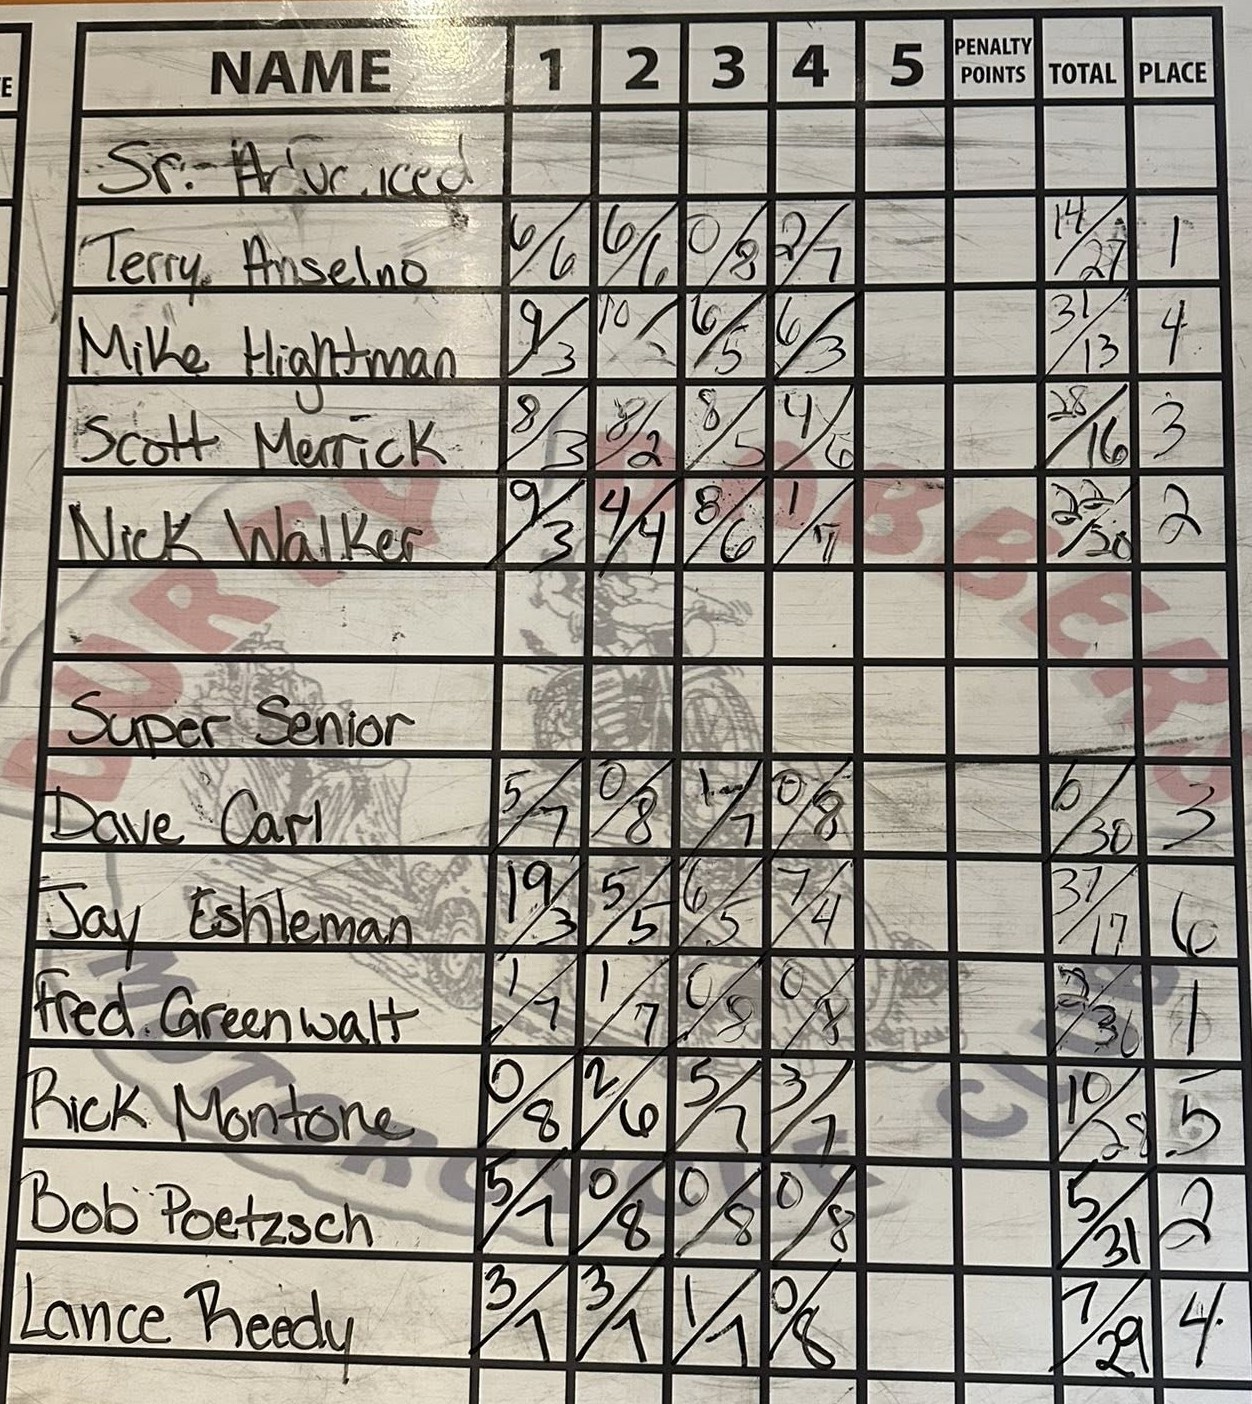 NAME 1 2 3 4 5 PENALTY POINTS TOTAL PLACE
Sr. Advanced
Terry Anselno 6/6 6/6 0/8 2/7 14/27 1
Mike Hightman 9/3 10/ 6/5 6/3 31/13 4
Scott Merrick 8/3 8/2 8/5 4/6 28/16 3
Nick Walker 9/3 4/4 8/6 1/7 22/20 2
Super Senior
Dave Carl 5/7 0/8 1/7 0/8 6/30 3
Jay Eshleman 19/3 5/5 6/5 7/4 37/17 6
Fred Greenwalt 1/7 1/7 0/8 0/8 2/30 1
Rick Montone 0/8 2/6 5/7 3/7 10/28 5
Bob Poetzsch 5/7 0/8 0/8 0/8 5/31 2
Lance Reedy 3/7 3/7 1/7 0/8 7/29 4
DURTY DABBERS
MOTORCYCLE CLUB